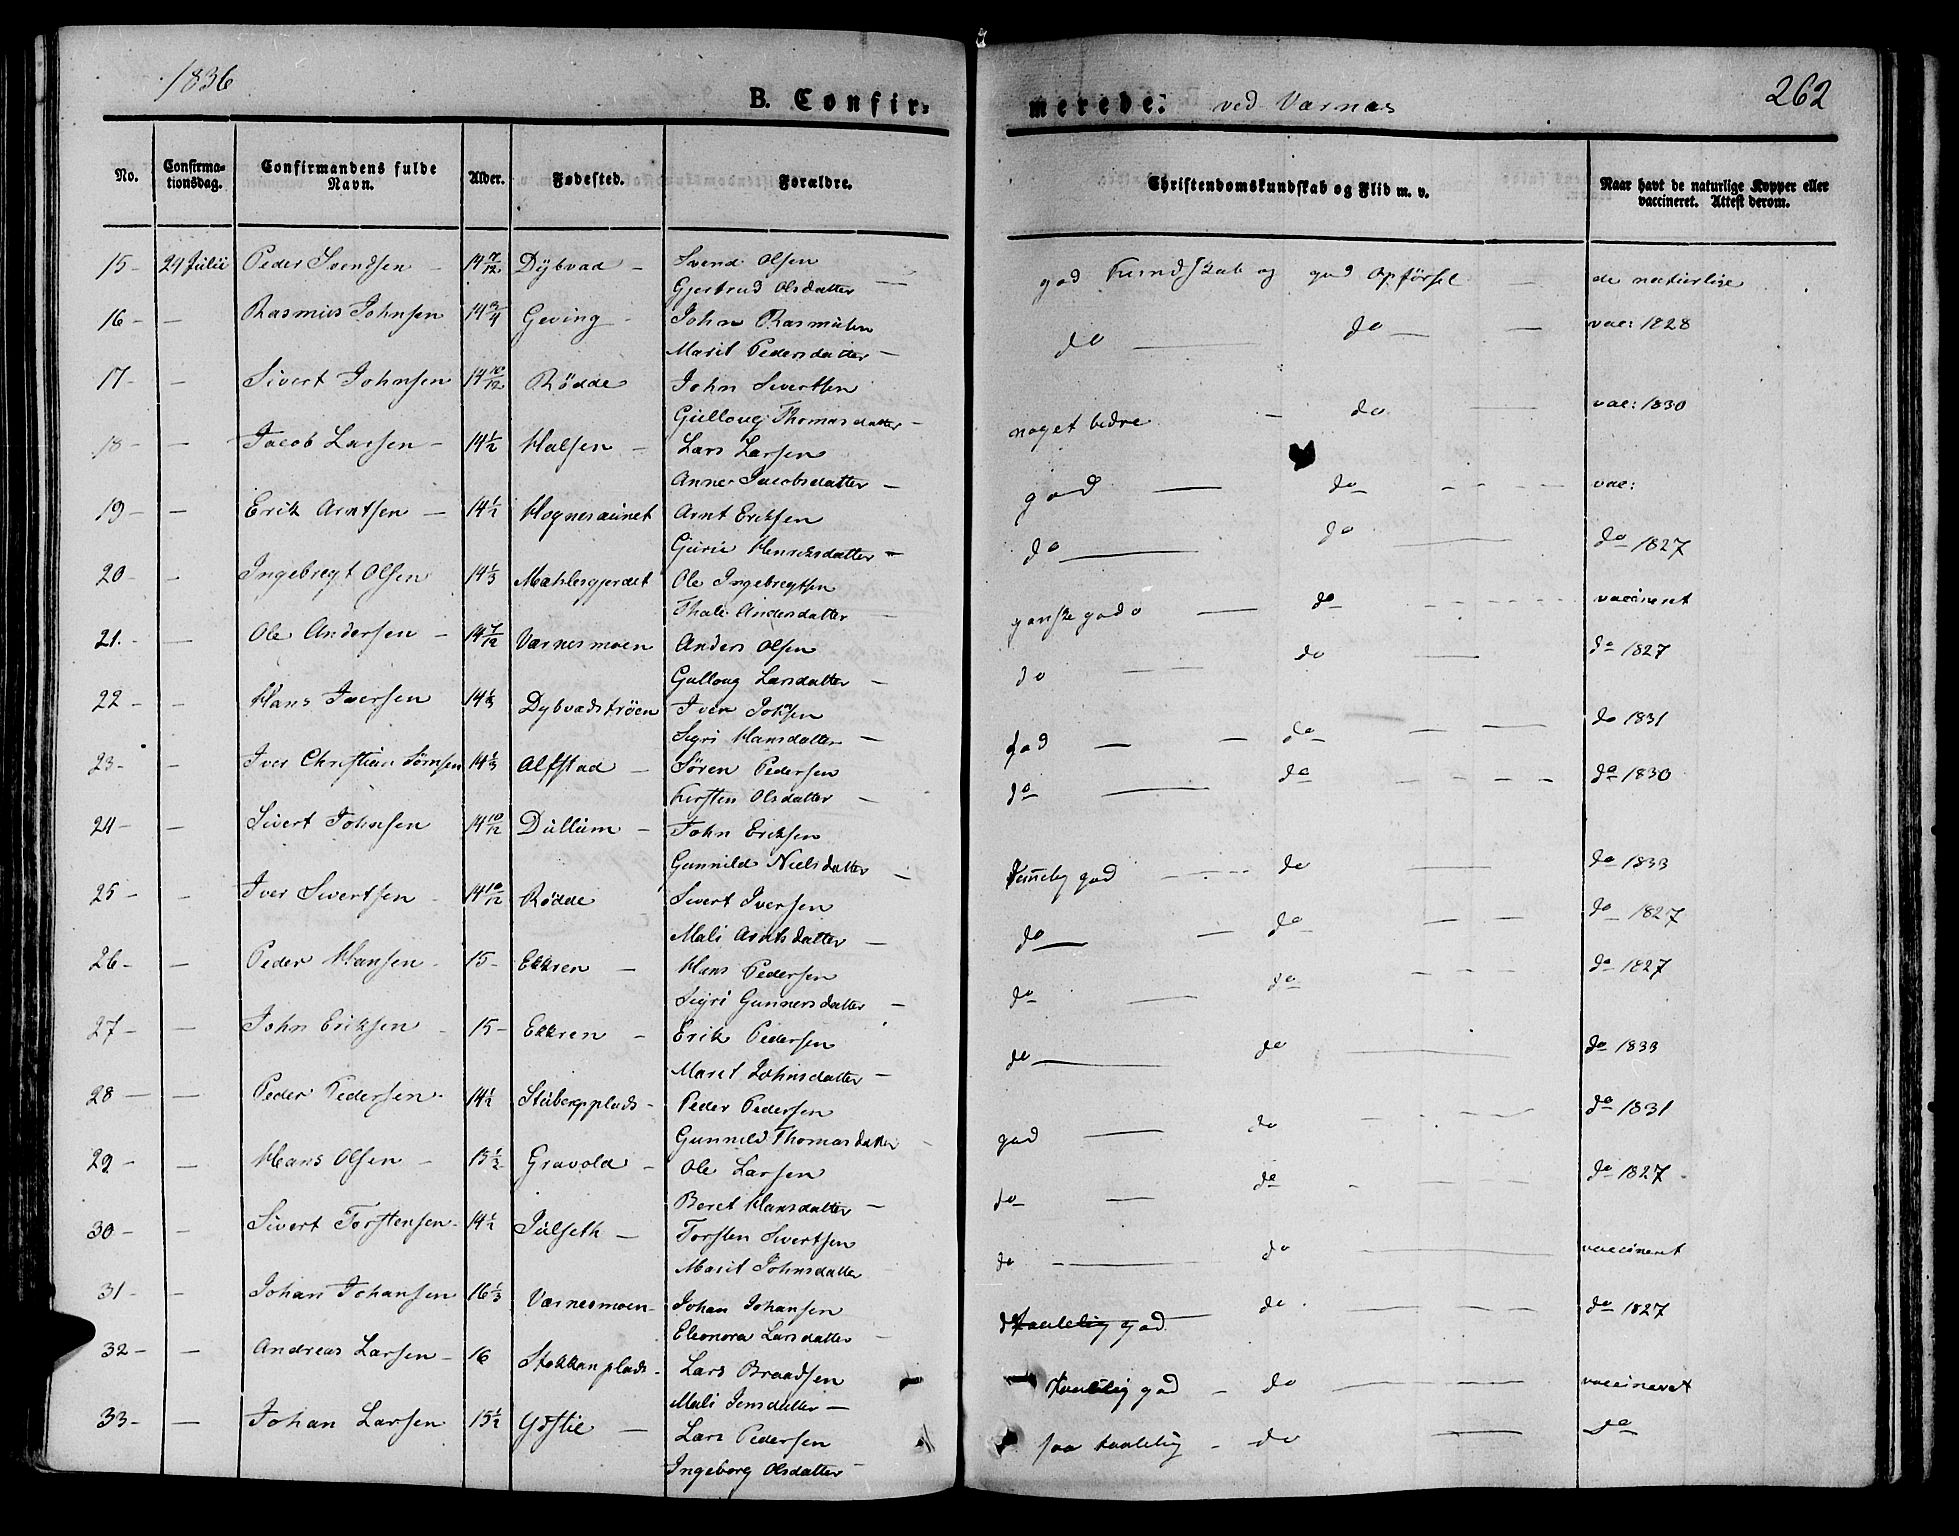 1836
B. Confir-
merede. ved Værnes
262
No. Confirma-tionsdag. Confirmandens fulde Navn. Alder. Fødested. Forældre. Christendomskundskab og Flid m. v. Naar havt de naturlige Kopper eller vaccineret. Attest derom.
15- 24 Julii Peder Svendsen - 14 7/12 Dybvad - Svend Olsen god Kundskab og god Opførsel - de naturlige
Gjertrud Olsdatter -
16- - Rasmus Johnsen 14 3/4 Geving - John Rasmusen do - do - - vac: 1828
Marit Pedersdatter -
17- - Sivert Johnsen 14 10/12 Rödde John Sivertsen noget bedre - do - vac: 1830
Gulloug Thomasdatter -
18- - Jacob Larsen - 14 1/2 Halsen - Lars Larsen god - do - - - - vac:
Anne Jacobsdatter -
19- - Erik Arntsen - 14 1/2 Hognesaunet Arnt Eriksen do - do - do 1827
Gurie Henriksdatter -
20- - Ingebregt Olsen 14 1/3 Mæhlesgjerdet Ole Ingebregtsen ganske god - do - - - - vaccineret
Thale Andersdatter -
21. - Ole Andersen - 14 7/12 Værnesmoen Anders Olsen do - - do - do 1827
Gulloug Larsdatter -
22- - Hans Iversen 14 1/3 Dybvadstrøen Iver Johnsen god - - do - - do 1831
Sigri Hansdatter -
23- - Iver Christian Sørnsen 14 1/3 Alfstad - Sören Pedersen do - do - - - - do 1830
Kersten Olsdatter -
24- - Sivert Johnsen 14 10/12 Dullum - John Eriksen temelig god - - - - do - do 1833
Gunnild Nielsdatter -
25- - Iver Sivertsen - 14 10/12 Rödde Sivert Iversen do - - do - - do 1827
Mali Arntsdatter -
26- - Peder Hansen - 15- Ekkren - Hans Pedersen do - do - - - do 1827
Sigri Gunnersdatter -
27- - John Eriksen - 15- Ekkren - Erik Pedersen do - do - do 1833
Marit Johnsdatter -
28- - Peder Pedersen - 14 1/2 Stubergplads - Peder Pedersen god - do - - - - do 1831
Gunnild Thomasdatter -
29- - Hans Olsen - 15 1/2 Gravold - Ole Larsen do - do - - - do 1827
Beret Hansdatter -
30- - Sivert Torstensen - 14 1/2 Julseth - Torsten Sivertsen do - do - vaccineret
Marit Johnsdatter -
31- - Johan Johansen 16 1/3 Værnesmoen - Johan Johansen taalelig god - do - - - do 1827
Eleonora Larsdatter -
32- - Andreas Larsen - 16 Stokkanplads - Lars Braadsen taalelig god - do - vaccineret
Mali Jensdatter -
33- - Johan Larsen 15 1/2 Ydstie - Lars Pedersen saa taalelig - do - do
Ingeborg Olsdatter -